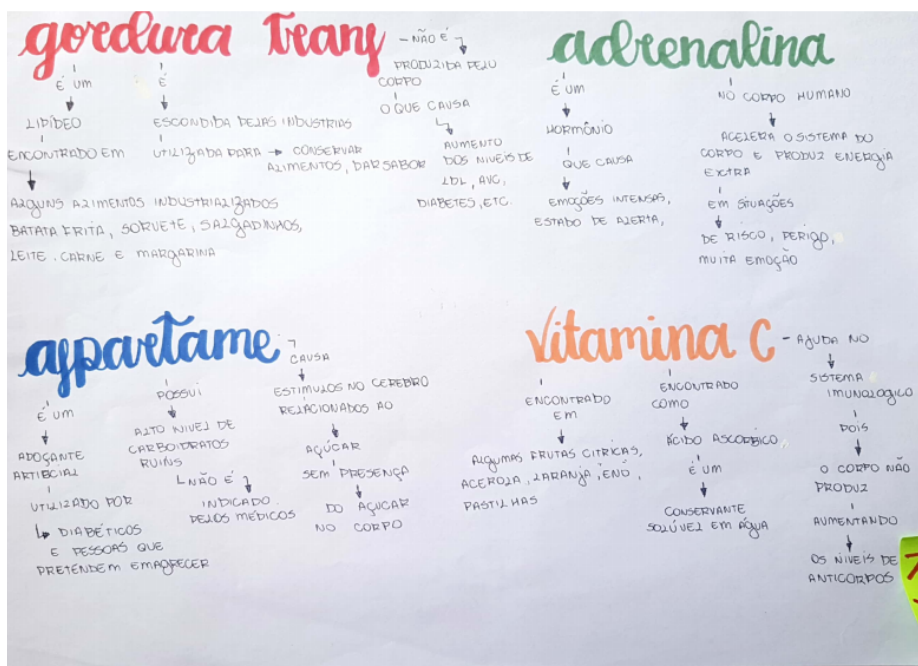 gordura trans
- NÃO É
PRODUZIDA PELU
CORPO
O QUE CAUSA
AUMENTO
DOS NIVEIS DE
LDL, AVC,
DIABETES, ETC.
É UM
LIPÍDEO
ENCONTRADO EM
ALGUNS ALIMENTOS INDUSTRIALIZADOS
BATATA FRITA, SORVETE, SALGADINHOS,
LEITE, CARNE E MARGARINA
É
ESCONDIDA PELAS INDUSTRIAS
UTILIZADA PARA → CONSERVAR
ALIMENTOS, DAR SABOR
adrenalina
É UM
HORMÔNIO
QUE CAUSA
EMOÇÕES INTENSAS,
ESTADO DE ALERTA,
NO CORPO HUMANO
ACELERA O SISTEMA DO
CORPO E PRODUZ ENERGIA
EXTRA
EM SITUAÇÕES
DE RISCO, PERIGO,
MUITA EMOÇÃO
aspartame
É UM
ADOÇANTE
ARTIFICIAL
UTILIZADO POR
DIABÉTICOS
E PESSOAS QUE
PRETENDEM EMAGRECER
POSSUI
ALTO NIVEL DE
CARBOIDRATOS
RUINS
NÃO É
INDICADO
PELOS MÉDICOS
CAUSA
ESTÍMULOS NO CEREBRO
RELACIONADOS AO
AÇÚCAR
SEM PRESENÇA
DO AÇUCAR
NO CORPO
vitamina C
ENCONTRADO
EM
ALGUMAS FRUTAS CITRICAS,
ACEROLA, LARANJA, ENO,
PASTILHAS
ENCONTRADO
COMO
ÁCIDO ASCORBICO,
É UM
CONSERVANTE
SOLÚVEL EM ÁGUA
- AJUDA NO
SISTEMA
IMUNOLOGICO
POIS
O CORPO NÃO
PRODUZ
AUMENTANDO
OS NIVEIS DE
ANTICORPOS